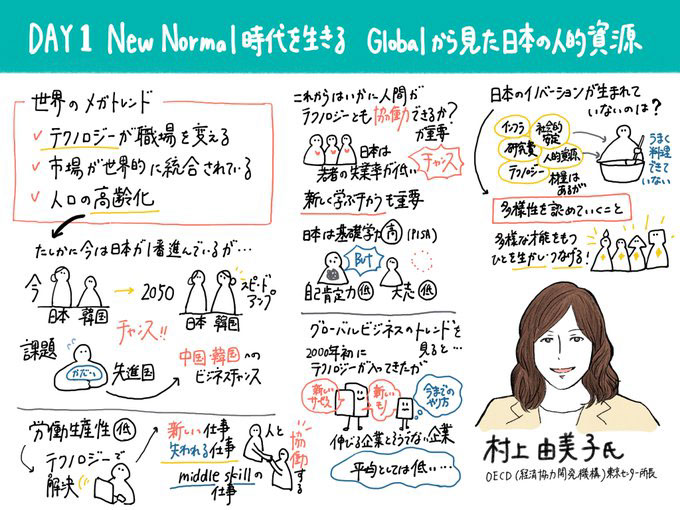 DAY1 New Normal時代を生きる Globalから見た日本の人的資源
世界のメガトレンド
✓ テクノロジーが職場を変える
✓ 市場が世界的に統合されている
✓ 人口の高齢化
たしかに今は日本が1番進んでいるが…
今
日本 韓国
→ 2050
日本 韓国
スピードアップ
チャンス!!
課題
かだい
先進国
中国・韓国への
ビジネスチャンス
労働生産性 低
テクノロジーで
解決
新しい仕事
失われる仕事
middle skillの
仕事
人と
協働
する
これからはいかに人間が
テクノロジーとも協働できるか?
が重要
日本は
若者の失業率が低い
チャンス
新しく学ぶ力も重要
日本は基礎学力 高 (PISA)
But
自己肯定力 低
大志 低
グローバルビジネスのトレンドを
見ると…
2000年初に
テクノロジーが入ってきたが
新しい
サービス
新しい
もの
今までの
やり方
伸びる企業とそうでない企業
平均としては低い…
日本のイノベーションが生まれて
いないのは?
インフラ
社会的
安定
研究費
人的資源
テクノロジー
材料は
あるが
うまく
料理
できて
いない
多様性を認めていくこと
多様な才能をもつ
ひとを生かしつなげる!
村上 由美子氏
OECD (経済協力開発機構) 東京センター所長